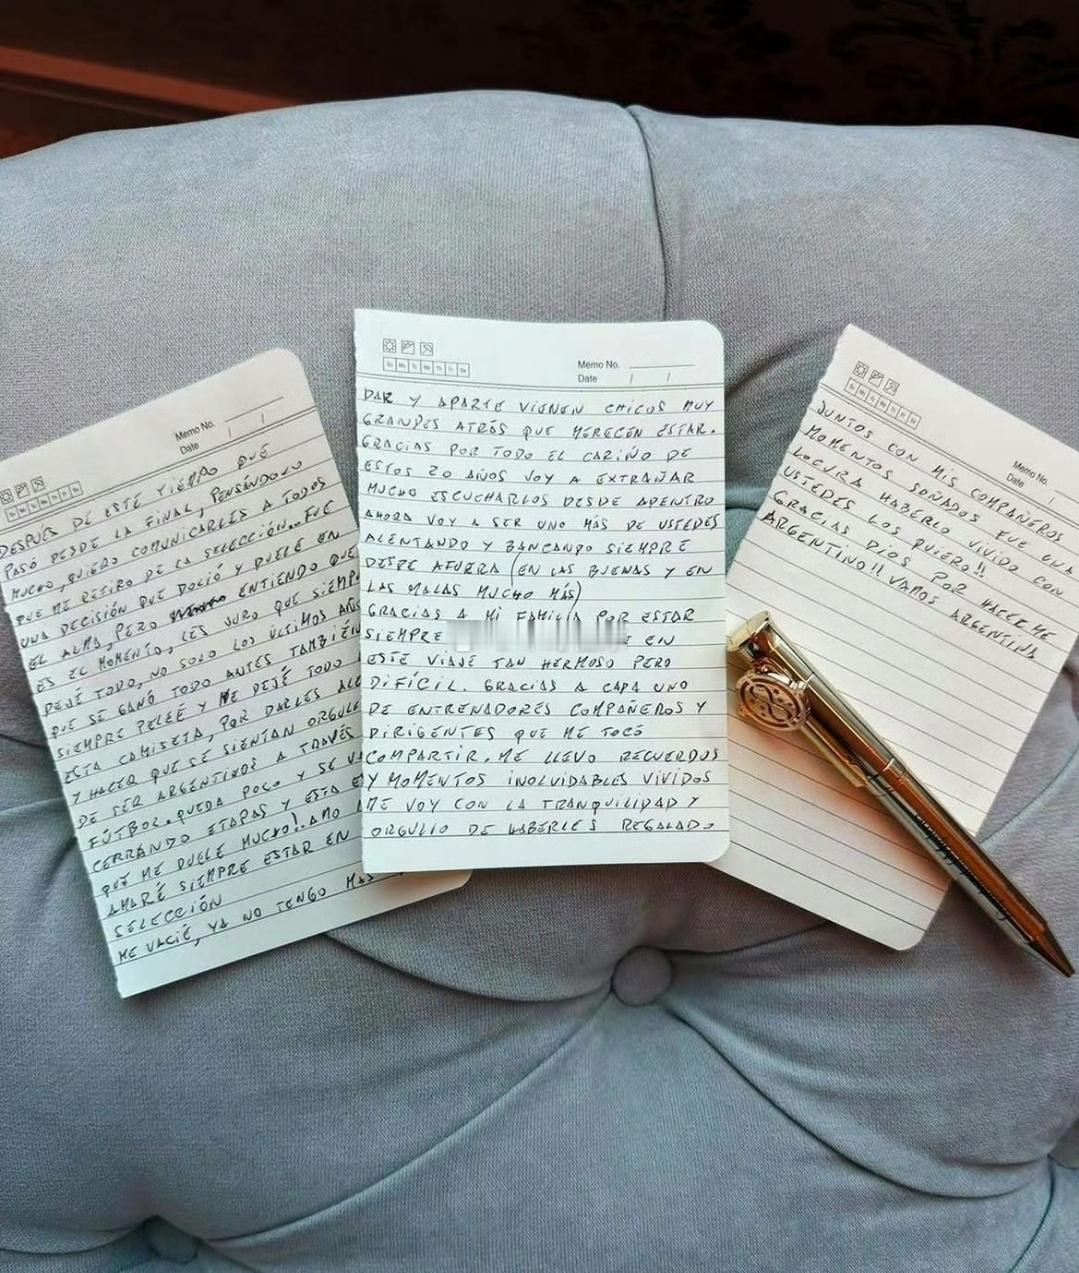 Memo No.
Date / /
DESPUÉS DE ESTE TIEMPO QUE
PASÓ DESDE LA FINAL, PENSÁNDOLO
MUCHO, QUIERO COMUNICARLES A TODOS
QUE ME RETIRO DE LA SELECCIÓN... FUE
UNA DECISIÓN QUE DOLIÓ Y DUELE EN
EL ALMA, PERO ENTIENDO QUE
ES EL MOMENTO, LES JURO QUE SIEMP
DEJÉ TODO, NO SOLO LOS ÚLTIMOS AÑOS
QUE SE GANÓ TODO ANTES TAMBIÉN
SIEMPRE PELEÉ Y ME DEJÉ TODO
ESTA CAMISETA, POR DARLES ALE
Y HACER QUE SE SIENTAN ORGULL
DE SER ARGENTINOS A TRAVÉS
FÚTBOL. QUEDA POCO Y SE VA
CERRANDO ETAPAS Y ESTA E
QUE ME DUELE MUCHO!. AMO
AMARÉ SIEMPRE ESTAR EN
SELECCIÓN
ME VACIÉ, YA NO TENGO MÁS
Su Mo Tu We Th Fr Sa
Memo No.
Date / /
DAR Y APARTE VIENEN CHICOS MUY
GRANDES ATRÁS QUE MERECEN ESTAR.
GRACIAS POR TODO EL CARIÑO DE
ESTOS 20 AÑOS VOY A EXTRAÑAR
MUCHO ESCUCHARLOS DESDE ADENTRO
AHORA VOY A SER UNO MÁS DE USTEDES
ALENTANDO Y BANCANDO SIEMPRE
DESDE AFUERA (EN LAS BUENAS Y EN
LAS MALAS MUCHO MÁS)
GRACIAS A MI FAMILIA POR ESTAR
SIEMPRE EN
ESTE VIAJE TAN HERMOSO PERO
DIFÍCIL. GRACIAS A CADA UNO
DE ENTRENADORES COMPAÑEROS Y
DIRIGENTES QUE ME TOCÓ
COMPARTIR. ME LLEVO RECUERDOS
Y MOMENTOS INOLVIDABLES VIVIDOS
ME VOY CON LA TRANQUILIDAD Y
ORGULLO DE HABERLES REGALADO
Memo No.
Date /
JUNTOS CON MIS COMPAÑEROS
MOMENTOS SOÑADOS FUE UNA
LOCURA HABERLO VIVIDO CON
USTEDES LOS QUIERO!!
GRACIAS DIOS POR HACERME
ARGENTINO!! VAMOS ARGENTINA